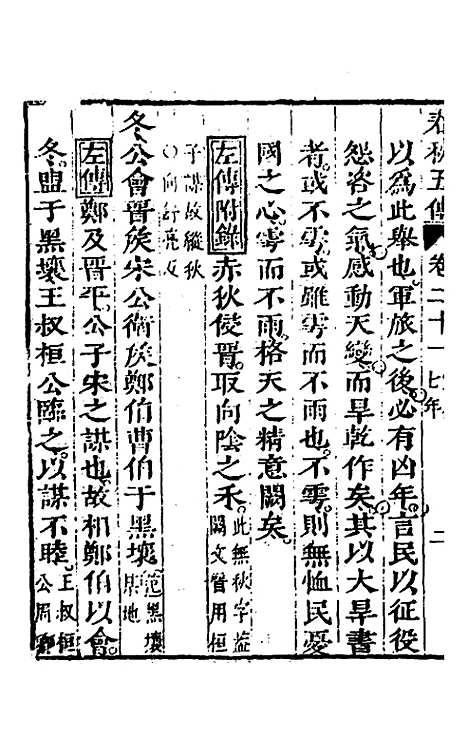 春秋五傳 卷二十一 七年 二
以爲此舉也軍旅之後必有凶年言民以征役
怨咨之氣感動天變而旱乾作矣其以大旱書
者或不雩或雖雩而不雨也不雩則無恤民憂
國之心雩而不雨格天之精意闕矣
左傳附錄赤狄侵晉取向陰之禾此無秋字蓋
闕文晉用桓
子謀故縱狄
○向舒亮反
冬公會晉侯宋公衛侯鄭伯曹伯于黑壤范黑壤
某地
左傳鄭及晉平公子宋之謀也故相鄭伯以會
冬盟于黑壤王叔桓公臨之以謀不睦王叔桓
公周卿